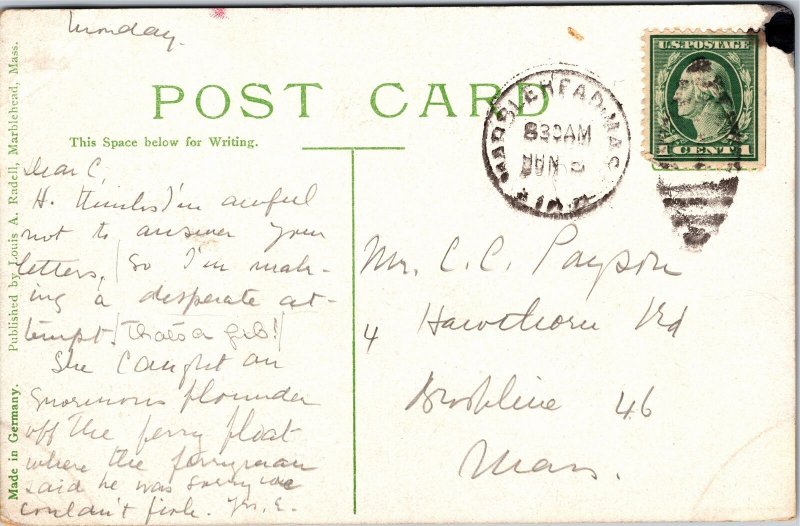 Monday.
POST CARD
This Space below for Writing.
U.S. POSTAGE
1 CENT 1
MARBLEHEAD, MASS.
830AM
Dear C,
H. thinks I'm awful
not to answer your
letters, (So I'm mak-
ing a desperate at-
tempt. (That's a fib!)
She caught an
enormous flounder
off the ferry float
where the ferryman
said he was sorry we
couldn't fish. Yrs. E.
Mr. C. C. Payson
4 Hawthorn Rd
Brookline 46
Mass.
Made in Germany. Published by Louis A. Radell, Marblehead, Mass.